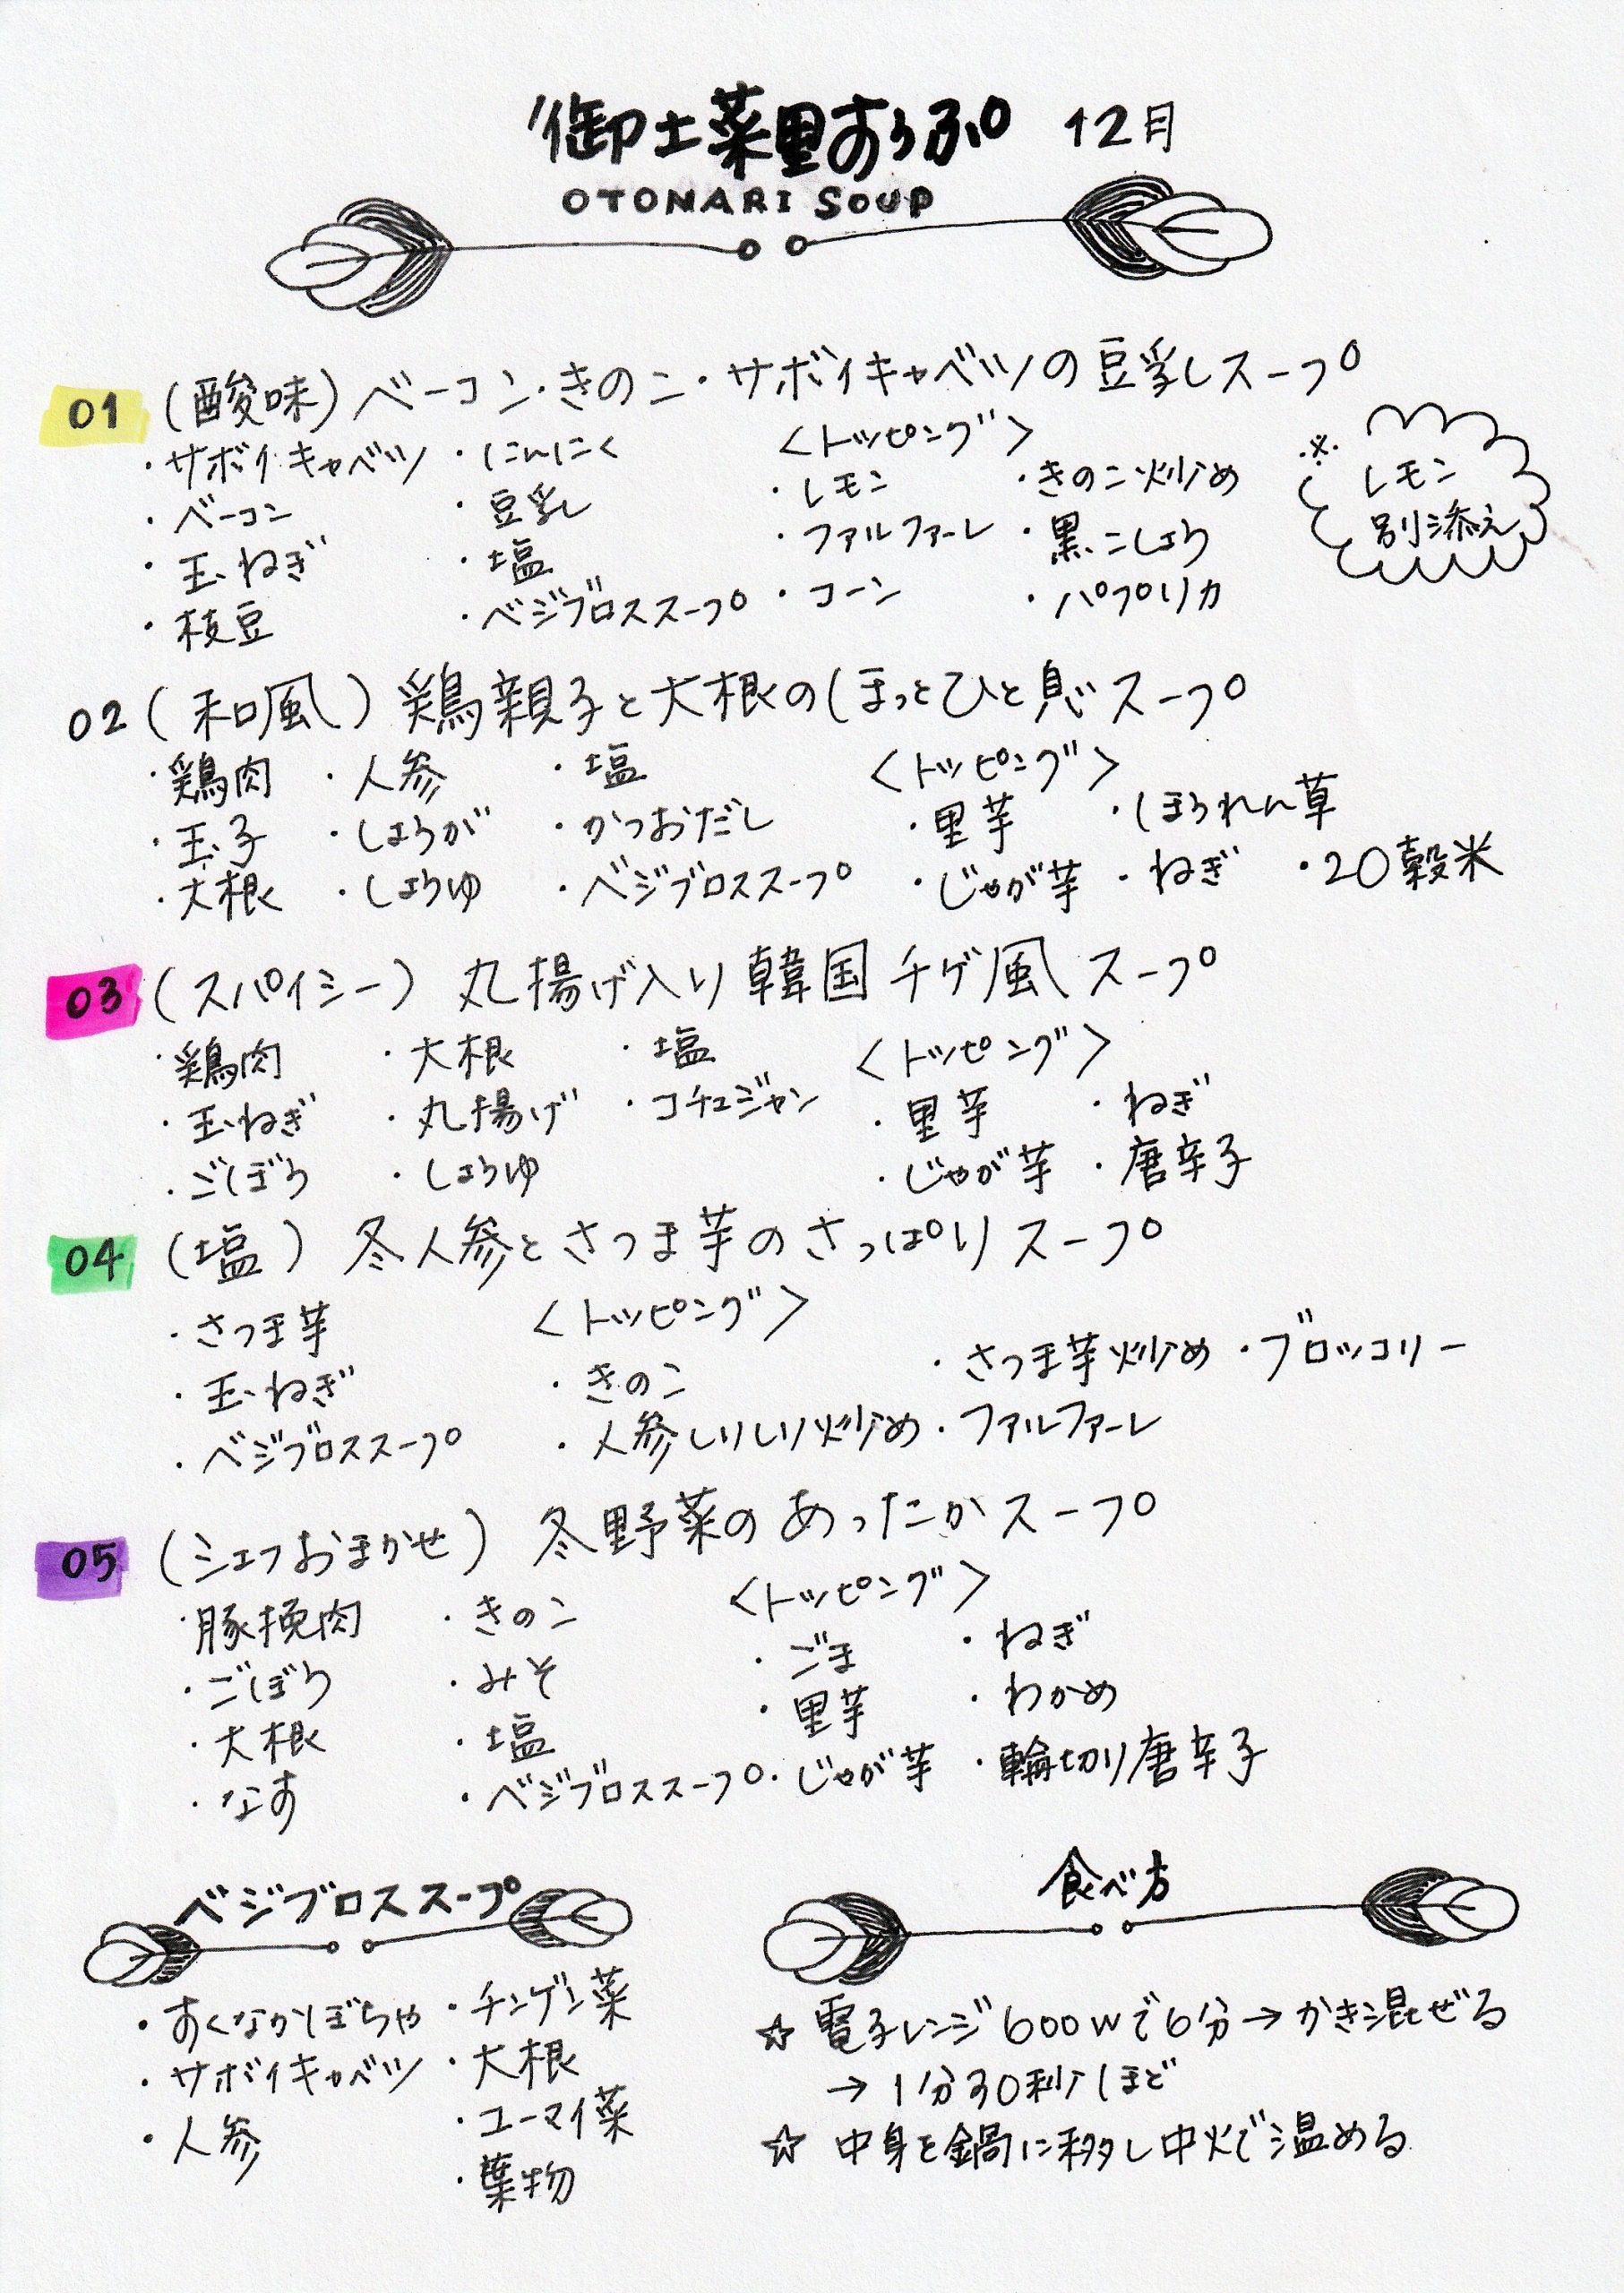 御土菜里すうぷ 12月
OTONARI SOUP
01 (酸味) ベーコン・きのこ・サボイキャベツの豆乳スープ
・サボイキャベツ ・にんにく <トッピング>
・ベーコン ・豆乳 ・レモン ・きのこ炒め
・玉ねぎ ・塩 ・ファルファーレ ・黒こしょう
・枝豆 ・ベジブロススープ ・コーン ・パプリカ
※レモン
別添え
02 (和風) 鶏親子と大根のほっとひと息スープ
・鶏肉 ・人参 ・塩 <トッピング>
・玉子 ・しょうが ・かつおだし ・里芋 ・ほうれん草
・大根 ・しょうゆ ・ベジブロススープ ・じゃが芋 ・ねぎ ・20穀米
03 (スパイシー) 丸揚げ入り韓国チゲ風スープ
・鶏肉 ・大根 ・塩 <トッピング>
・玉ねぎ ・丸揚げ ・コチュジャン ・里芋 ・ねぎ
・ごぼう ・しょうゆ ・じゃが芋 ・唐辛子
04 (塩) 冬人参とさつま芋のさっぱりスープ
・さつま芋 <トッピング>
・玉ねぎ ・きのこ ・さつま芋炒め ・ブロッコリー
・ベジブロススープ ・人参しりしり炒め ・ファルファーレ
05 (シェフおまかせ) 冬野菜のあったかスープ
・豚挽肉 ・きのこ <トッピング>
・ごぼう ・みそ ・ごま ・ねぎ
・大根 ・塩 ・里芋 ・わかめ
・なす ・ベジブロススープ ・じゃが芋 ・輪切り唐辛子
ベジブロススープ
・すくなかぼちゃ ・チンゲン菜
・サボイキャベツ ・大根
・人参 ・ユーマイ菜
・葉物
食べ方
☆ 電子レンジ600wで6分→かき混ぜる
→1分30秒ほど
☆ 中身を鍋に移し中火で温める